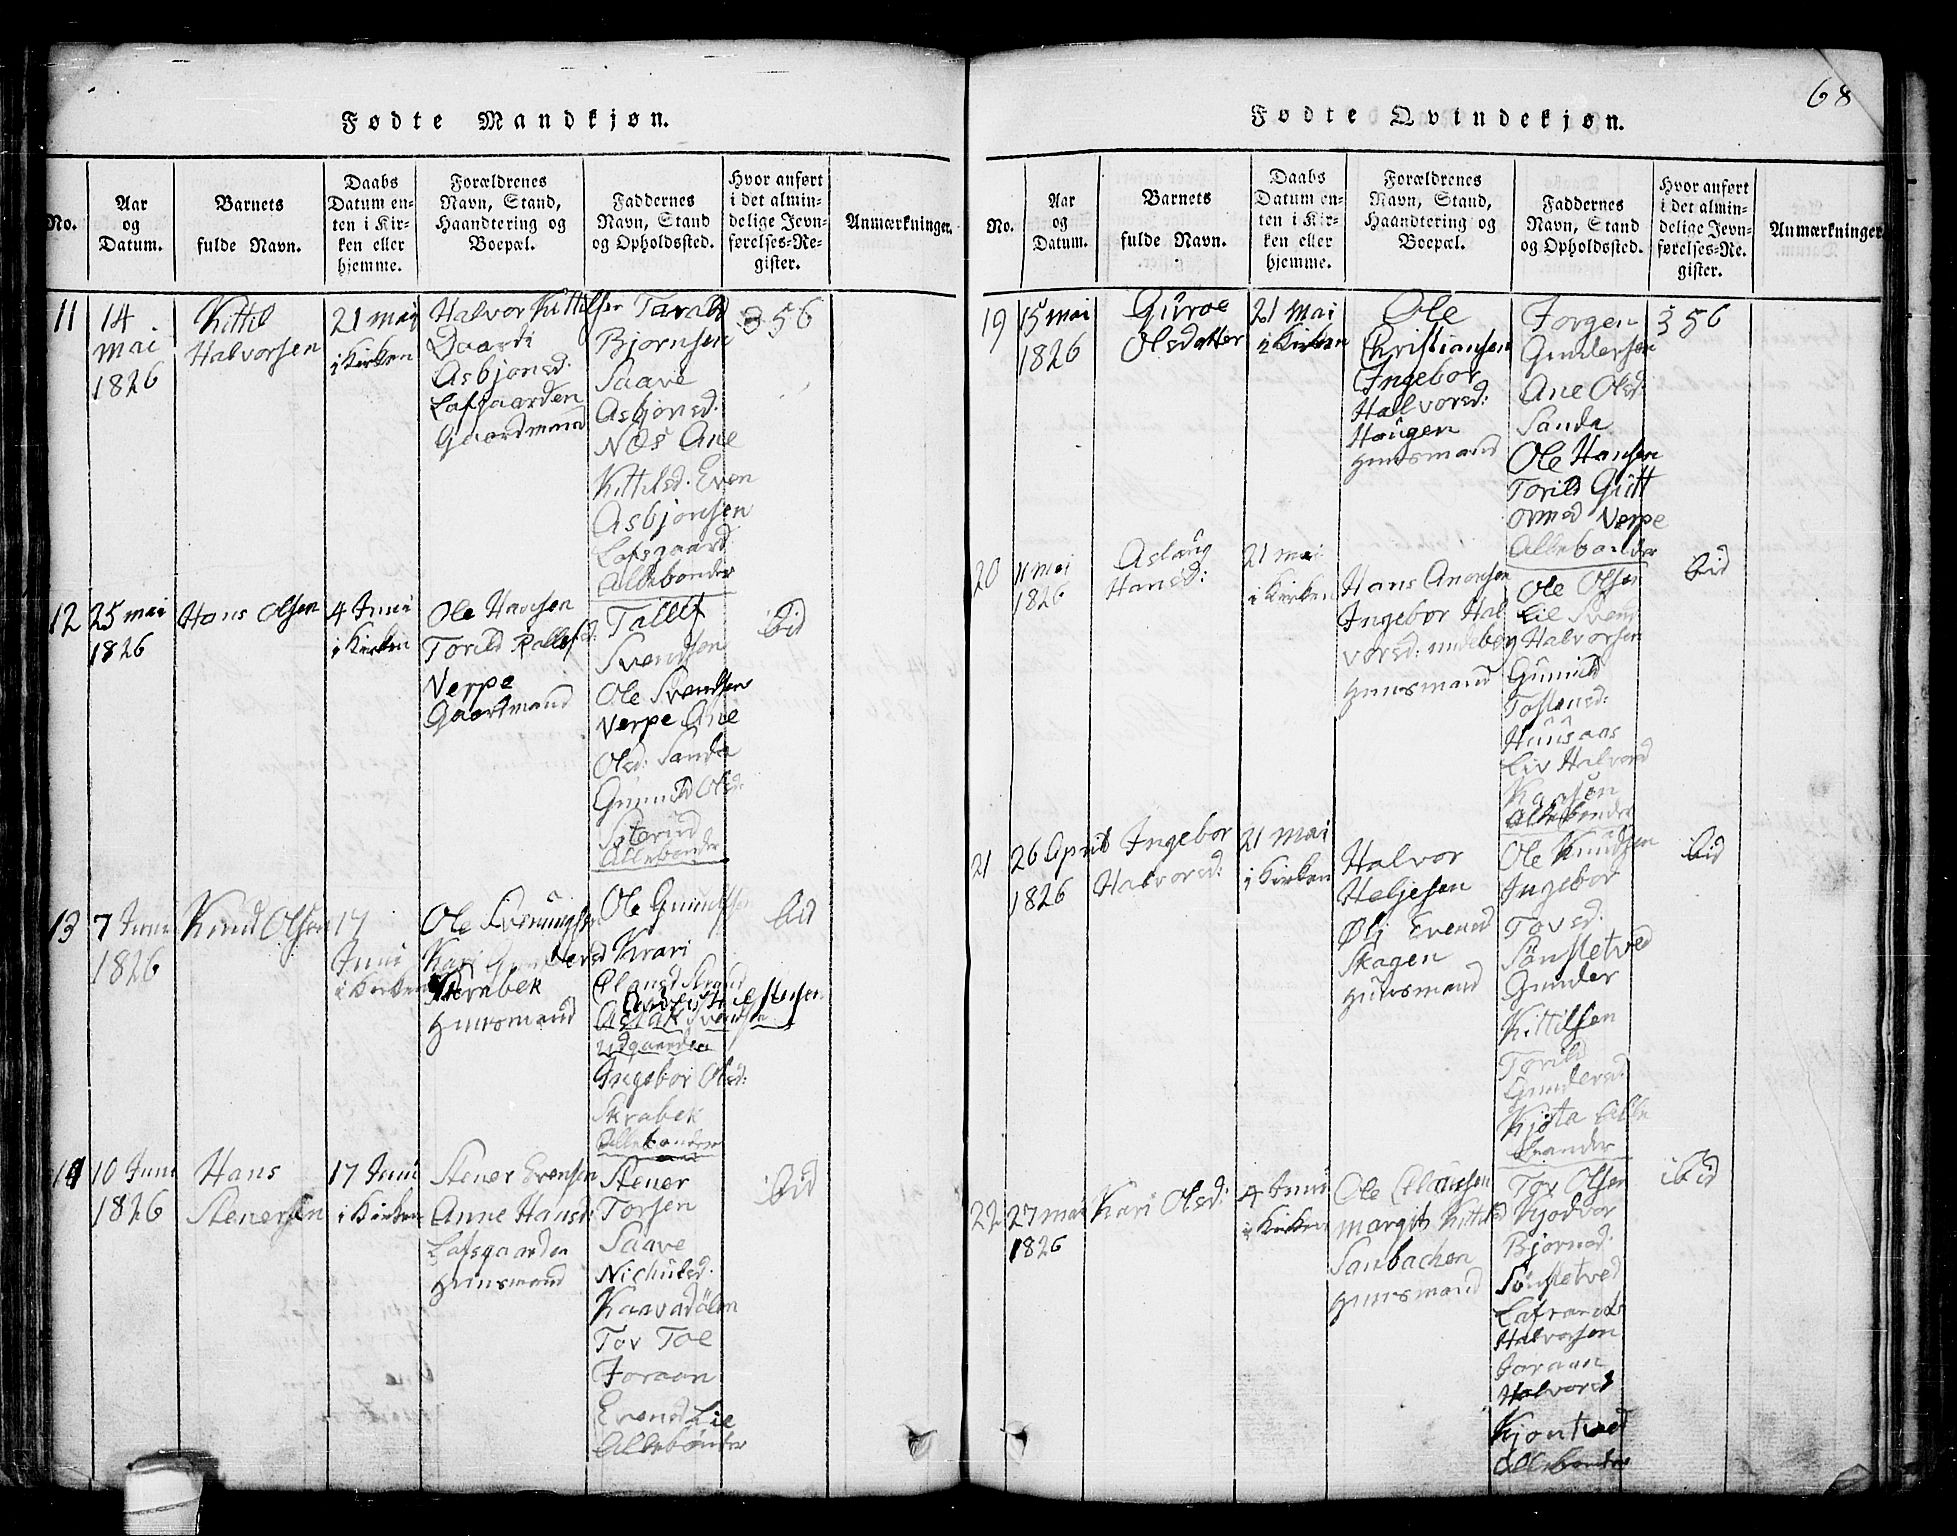 68
Fødte Mandkjøn.
No.
Aar
og
Datum.
Barnets
fulde Navn.
Daabs
Datum en-
ten i Kir-
ken eller
hjemme.
Forældrenes
Navn, Stand,
Haandtering og
Boepæl.
Faddernes
Navn, Stand
og Opholdssted.
Hvor anført
i det almin-
delige Jevn-
førelses-Re-
gister.
Anmærkninger.
11
14
mai
1826
Kittil
Halvorsen
21 mai
i Kirken
Halvor Kittilsen
Daardi
Asbjønsd:
Lafsgaarden
Gaardmand
Tarald
Bjørnsen
Saave
Asbjønsd:
Næs Ane
Kittilsd: Even
Asbjønsen
Lafsgaard
Allebønder
356
12
25 mai
1826
Hans Olsen
4 Juni
i Kirken
Ole Hansen
Torild Rollefsd:
Verpe
Gaartmand
Tallef
Svendsen
Ole Svendsen
Verpe Ane
Olsd: Sanda
Gunild Olsd:
Allebønder
ibid
13
7 Juni
1826
Knud Olsen
17
Juni
i Kirken
Ole Svenungsen
Kari
Skrabek
Huusmand
Ole Gunildsen
Kari
Aslak Svendsen
Udgaarden
Ingebor Olsd:
Skrabek
Allebønder
ibid
14
10 Juni
1826
Hans
Stenersen
17 Juni
i Kirken
Stener Evensen
Anne Hansd:
Lafsgaarden
Huusmand
Stener
Torsen
Saave
Nichulsd:
Kaavadålen
Tov Toe
Joraan
Evensd Lie
Allebønder
ibid
Fødte Qvindekjøn.
No.
Aar
og
Datum.
Barnets
fulde Navn.
Daabs
Datum en-
ten i Kir-
ken eller
hjemme.
Forældrenes
Navn, Stand,
Haandtering og
Boepæl.
Faddernes
Navn, Stand
og Opholdssted.
Hvor anført
i det almin-
delige Jevn-
førelses-Re-
gister.
Anmærkninger.
19
15 mai
1826
Guroe
Olsdatter
21 Mai
i Kirken
Ole
Christiansen
Ingebor
Halvorsd:
Haugen
Huusmand
Jorgen
Gundersen
Ane Olsd:
Sanda
Ole Hansen
Torild Gutt
ormsd Verpe
Allebønder
356
20
11 mai
1826
Aslaug
Hansd:
21 mai
i Kirken
Hans Anonsen
Ingebor Hal
vorsd: undebøy
Huusmand
Ole Olsen
Lie Svenn
Halvorsen
Gunild
Tostensd:
Huusaas
Liv Halvorsd
Kaasen
Allebønder
ibid
21
26 April
1826
Ingebor
Halvorsd:
21 Mai
i Kirken
Halvor
Heljesen
Ølj Evensd
Skogen
Huusmand
Ole Knudsen
Ingebor
Tovsd:
Sønstetved
Gunder
Kittilsen
Torild
Gundersd:
Kjøsta Alle
bønder
ibid
22
27 mai
1826
Kari Olsd:
4 Juni
i Kirken
Ole Clausen
margit Kittilsd
Sanbachen
Huusmand
Tov Olsen
Kjodvor
Bjørnsd:
Sønstetved
Lafrands
Halvorsen
Joraan
Halvorsd
Kjontved
Allebønder
ibid